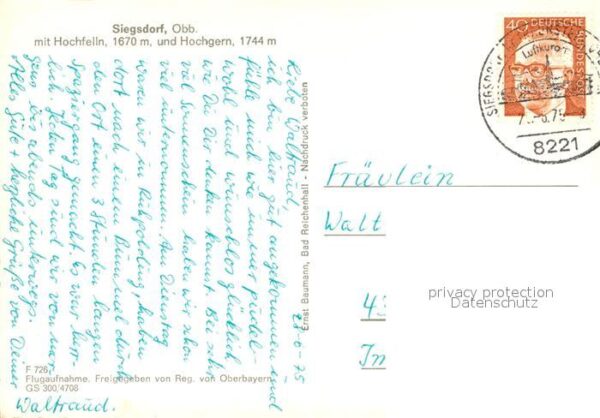 Siegsdorf, Obb.
mit Hochfelln, 1670 m, und Hochgern, 1744 m
40 DEUTSCHE BUNDESPOST
SIEGSDORF
Luftkurort
8221
28-6-75
Liebe Waltraud,
ich bin hier gut angekommen und
fühle mich wie immer pudel-
wohl und wunschlos glücklich
wie Du Dir denken kannst. Bei sehr
viel Sonnenschein haben wir schon
viel unternommen. Am Dienstag
waren wir in Ruhpolding, haben
dort nach einem Bummel durch
den Ort einen 3 Stunden langen
Spaziergang gemacht. Es war herr-
lich. Jeden Tag sind wir von mor-
gens bis abends unterwegs.
Alles Gute + herzliche Grüße von Deiner
Waltraud.
Ernst Baumann, Bad Reichenhall - Nachdruck verboten
Fräulein
Walt
43
Im
privacy protection
Datenschutz
F 726
Flugaufnahme. Freigegeben von Reg. von Oberbayern
GS 300/4708